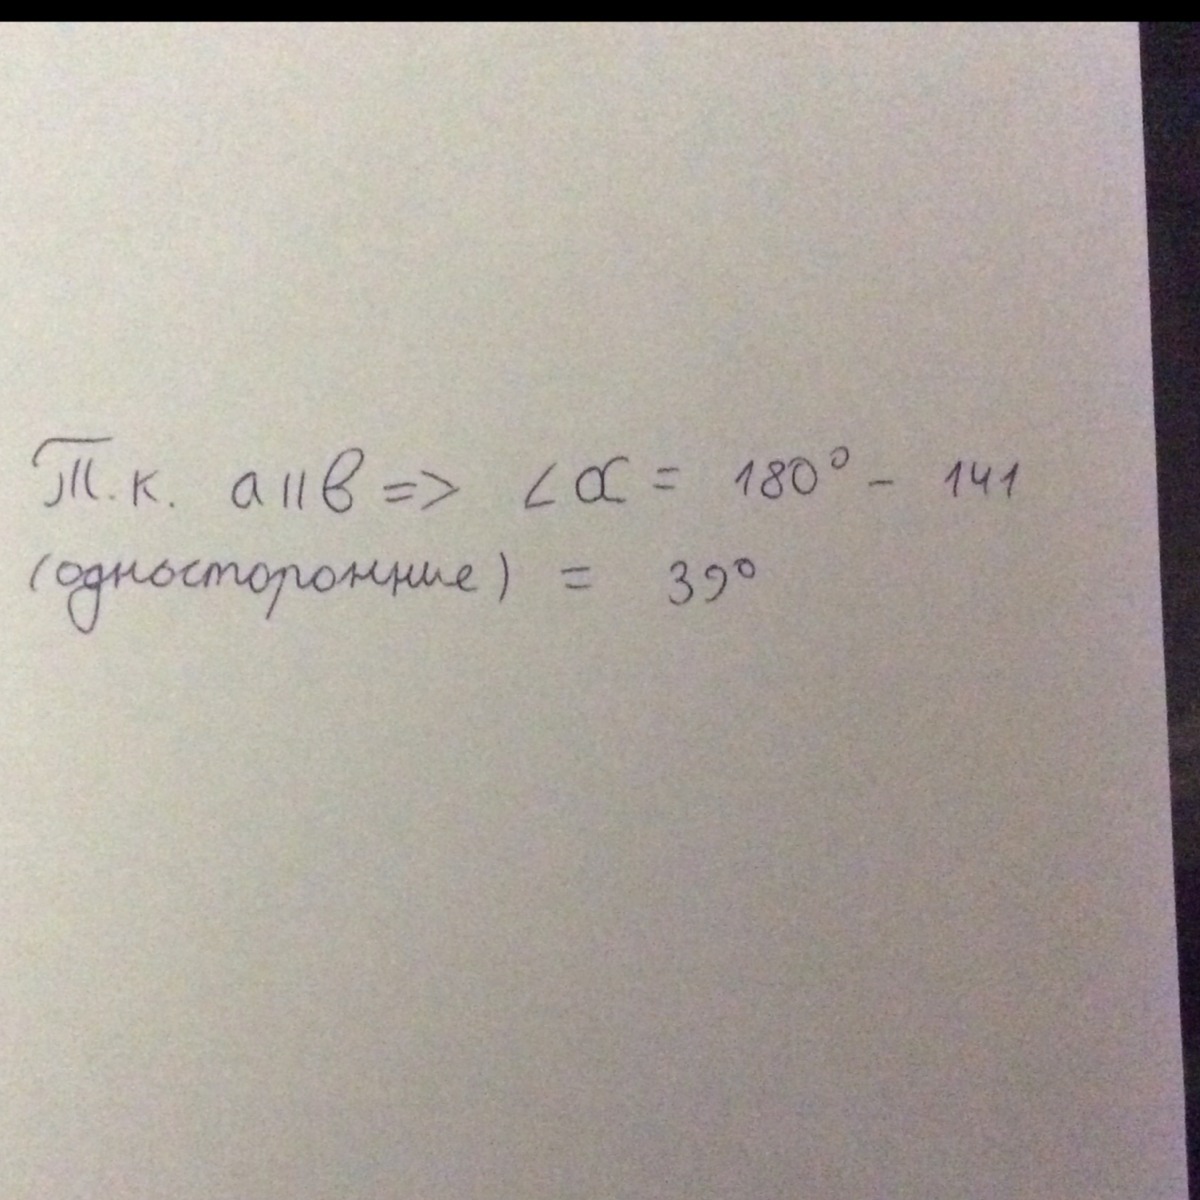 Т.к. a || в => ∠α = 180° - 141
(односторонние) = 39°